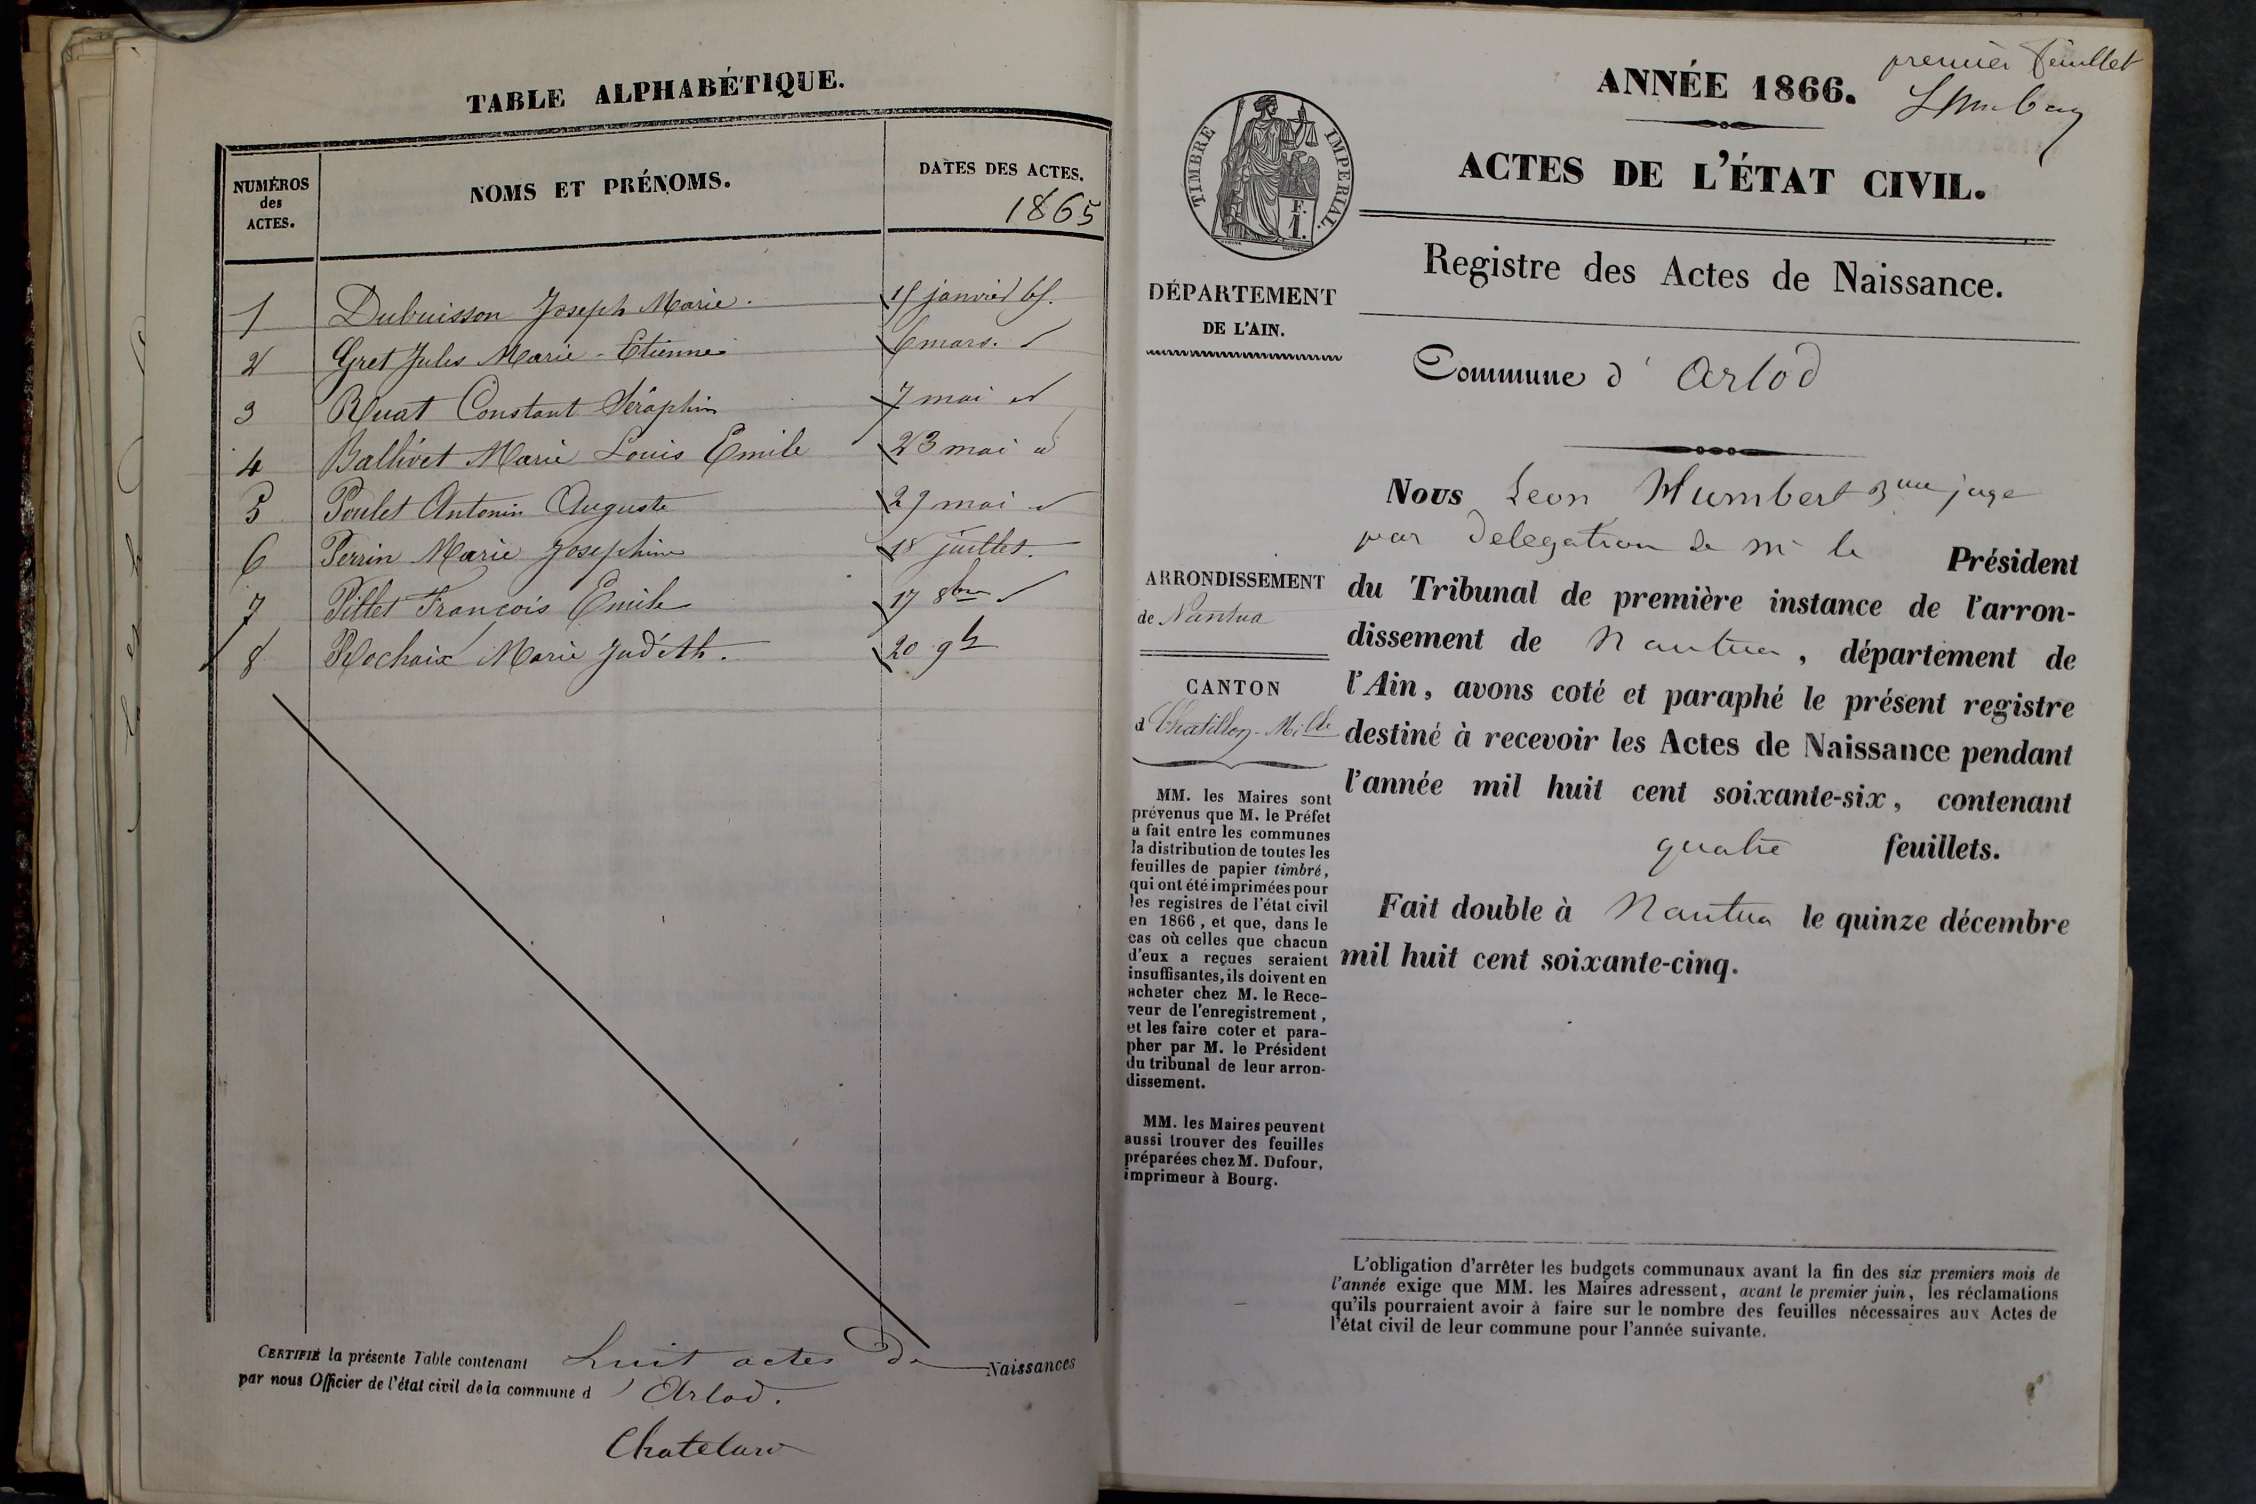 TABLE ALPHABÉTIQUE.
NUMÉROS des ACTES.
NOMS ET PRÉNOMS.
DATES DES ACTES.
1865
1 Dubuisson Joseph Marie. 15 janvier 65.
2 Gret Jules Marie-Etienne 6 mars.
3 Ruat Constant Séraphin 7 mai
4 Ballivet Marie Louis Emile 23 mai
5 Poulet Antonin Auguste 29 mai
6 Perrin Marie Josephine 18 juillet.
7 Pillet François Emile 17 8bre
8 Rochaix Marie Judith. 20 9b
CERTIFIÉ la présente Table contenant huit actes de Naissances
par nous Officier de l'état civil de la commune d'Arlod.
Chatelard
premier feuillet
ANNÉE 1866.
ACTES DE L'ÉTAT CIVIL.
TIMBRE IMPERIAL.
F. 1.
Registre des Actes de Naissance.
DÉPARTEMENT
DE L'AIN.
Commune d'Arlod
ARRONDISSEMENT
de Nantua
CANTON
d Chatillon-Mi.lle
MM. les Maires sont
prévenus que M. le Préfet
a fait entre les communes
la distribution de toutes les
feuilles de papier timbré,
qui ont été imprimées pour
les registres de l'état civil
en 1866, et que, dans le
cas où celles que chacun
d'eux a reçues seraient
insuffisantes, ils doivent en
acheter chez M. le Rece-
veur de l'enregistrement,
et les faire coter et para-
pher par M. le Président
du tribunal de leur arron-
dissement.
MM. les Maires peuvent
aussi trouver des feuilles
préparées chez M. Dufour,
imprimeur à Bourg.
Nous Leon Humbert 3me juge
par delegation de mr le Président
du Tribunal de première instance de l'arron-
dissement de Nantua, département de
l'Ain, avons coté et paraphé le présent registre
destiné à recevoir les Actes de Naissance pendant
l'année mil huit cent soixante-six, contenant
quatre feuillets.
Fait double à Nantua le quinze décembre
mil huit cent soixante-cinq.
L'obligation d'arrêter les budgets communaux avant la fin des six premiers mois de
l'année exige que MM. les Maires adressent, avant le premier juin, les réclamations
qu'ils pourraient avoir à faire sur le nombre des feuilles nécessaires aux Actes de
l'état civil de leur commune pour l'année suivante.